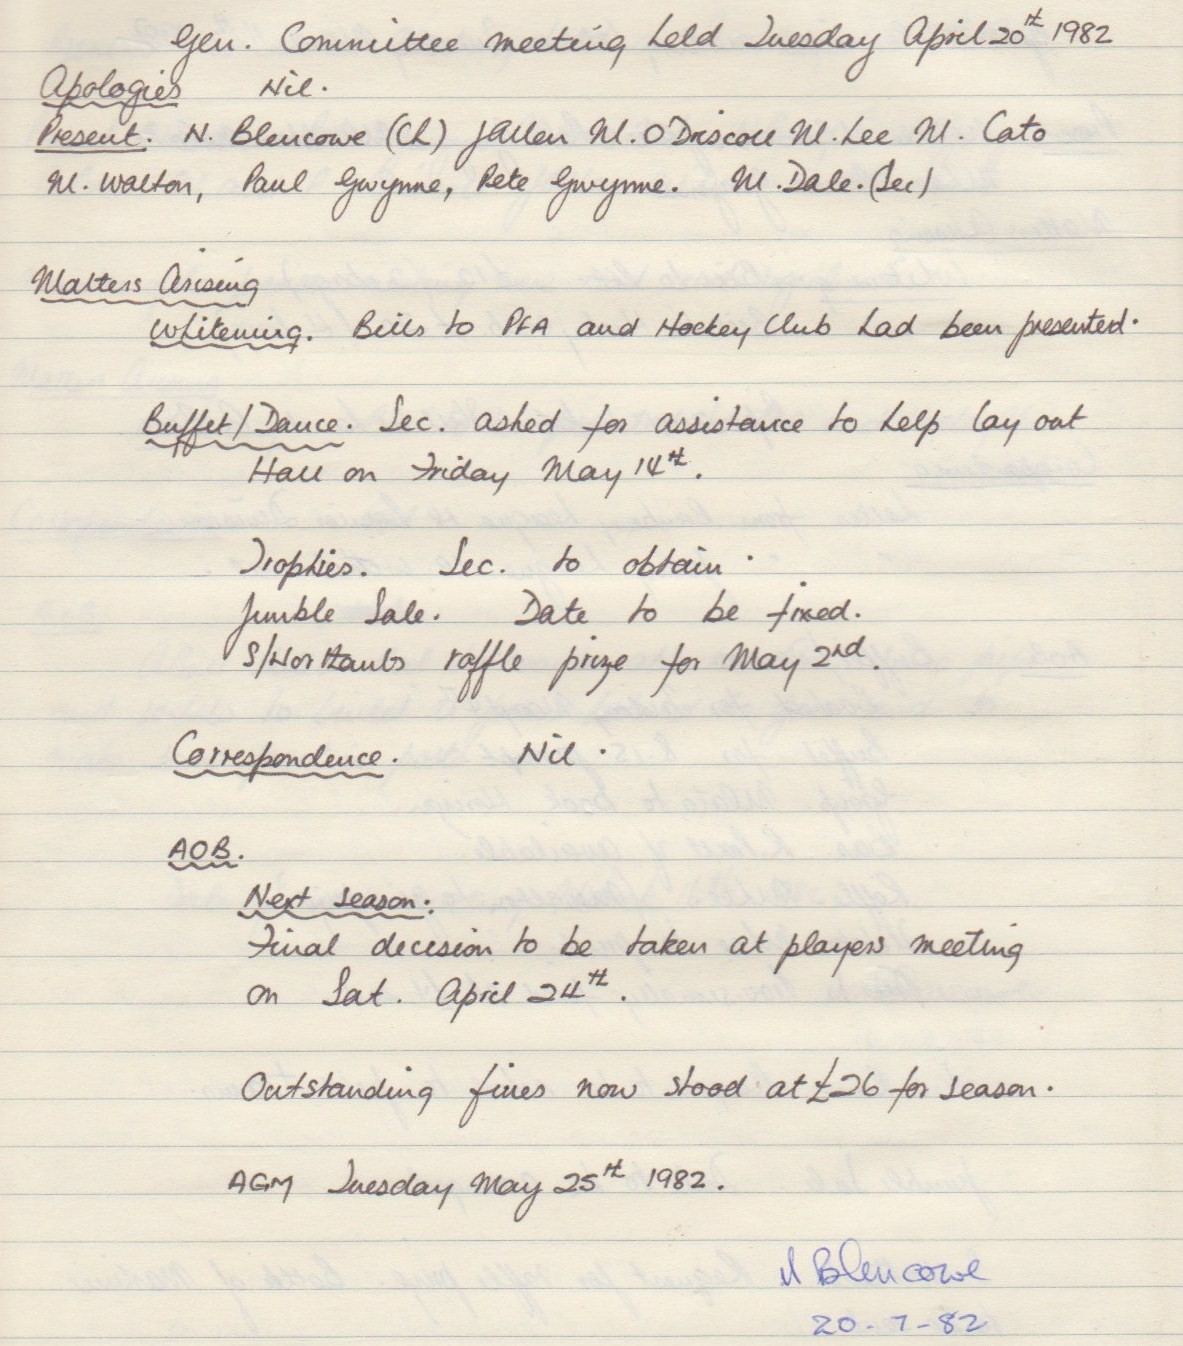 Gen. Committee meeting held Tuesday April 20th 1982
Apologies Nil.
Present. N. Blencowe (Ch) J Allen M. O'Driscoll M. Lee M. Cato
M. Walton, Paul Gwynne, Pete Gwynne. M. Dale. (Sec)
Matters Arising
Whitening. Bills to PFA and Hockey Club had been presented.
Buffet/Dance. Sec. asked for assistance to help lay out
Hall on Friday May 14th.
Trophies. Sec. to obtain.
Jumble Sale. Date to be fixed.
S/Northants raffle prize for May 2nd.
Correspondence. Nil.
AOB.
Next season:
Final decision to be taken at players meeting
on Sat. April 24th.
Outstanding fines now stood at £26 for season.
AGM Tuesday May 25th 1982.
N Blencowe
20-7-82